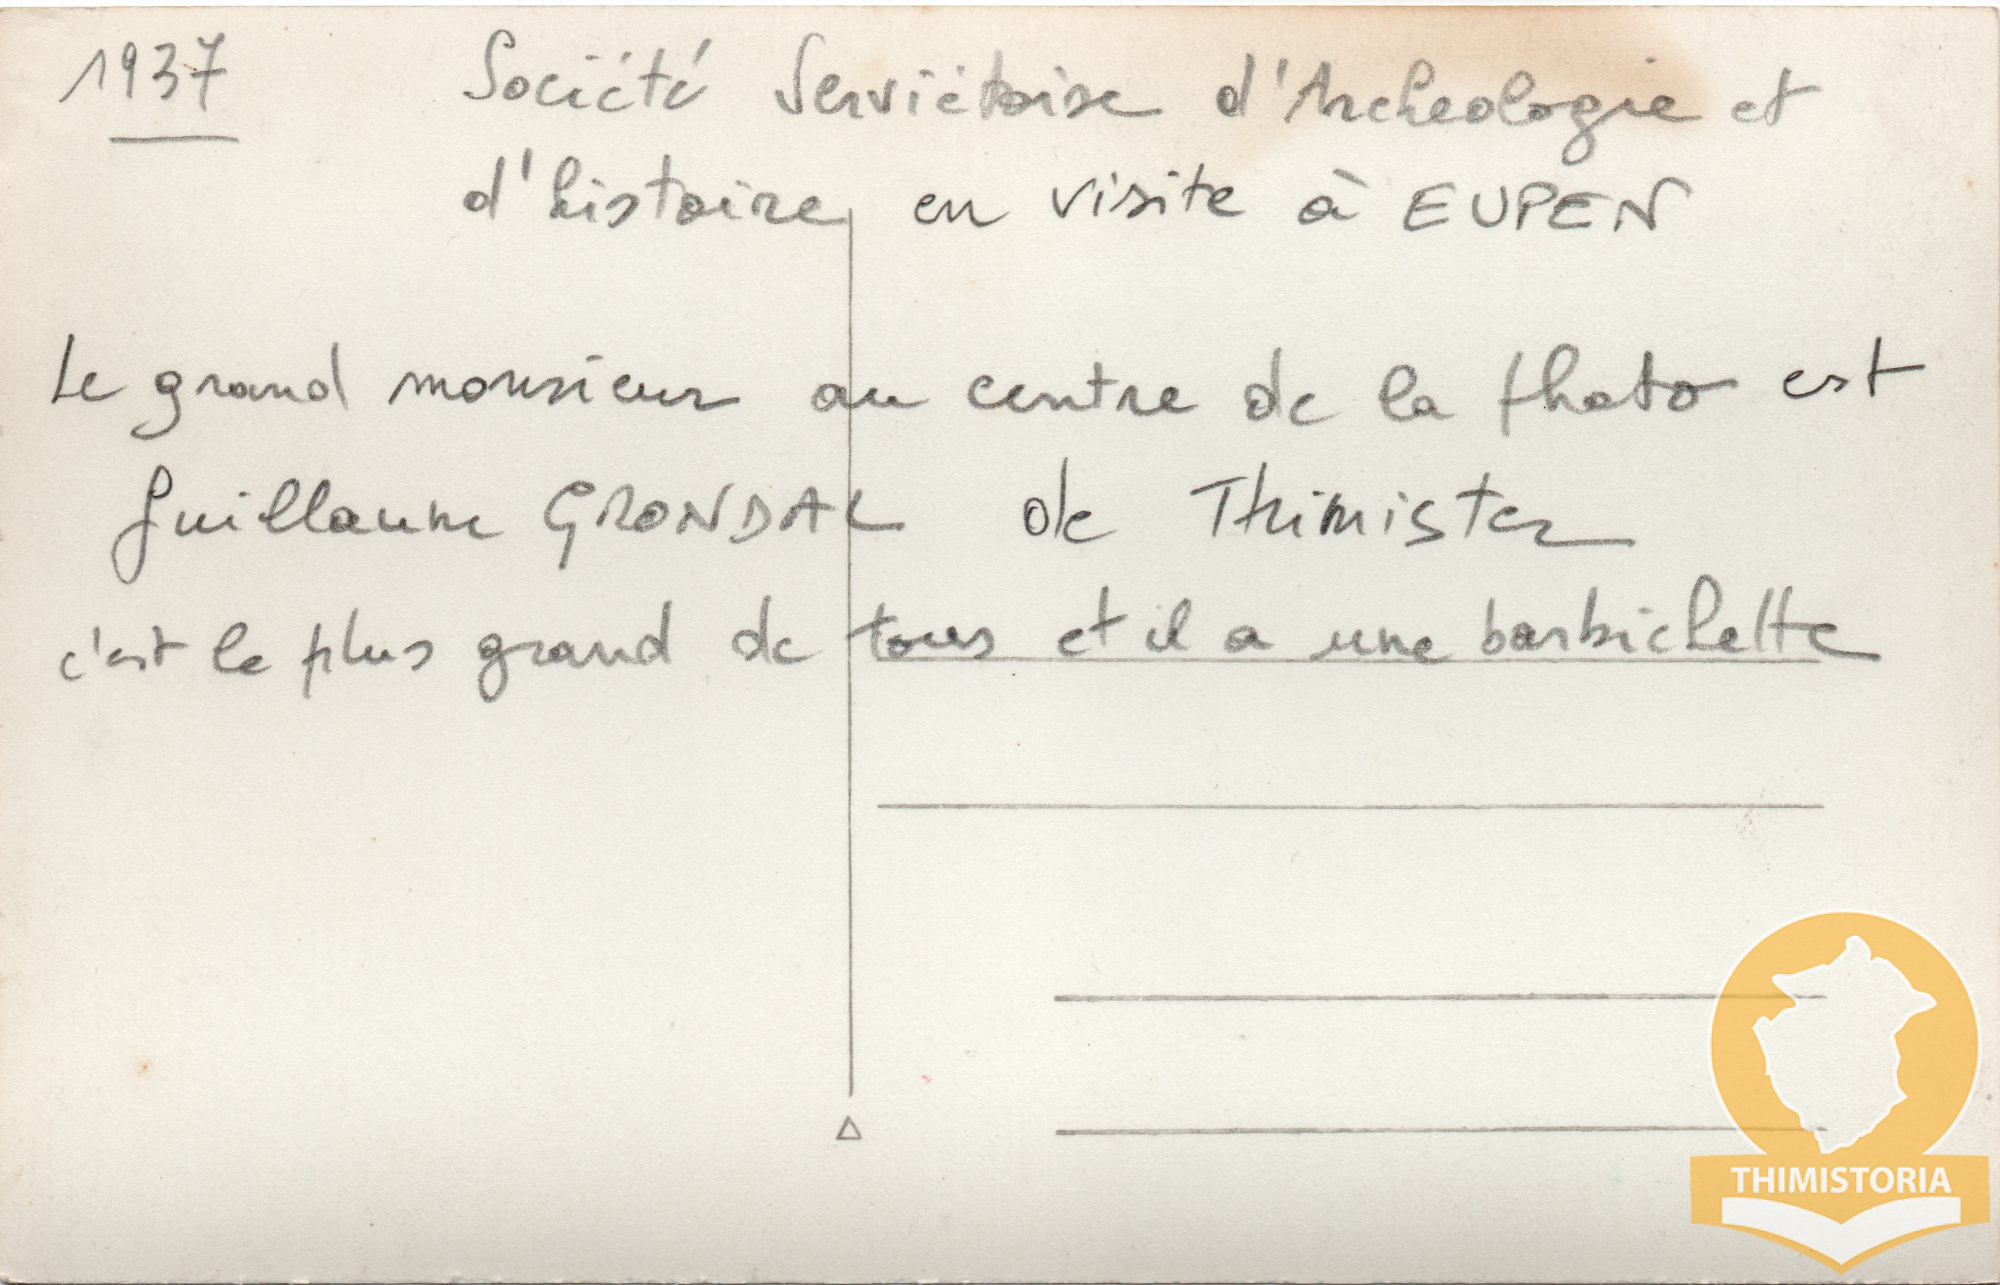 1937 Société Serviétoise d'Archeologie et
d'histoire en visite à EUPEN
Le grand monsieur au centre de la photo est
Guillaume GRONDAL de Thimister
c'est le plus grand de tous et il a une barbichette
THIMISTORIA